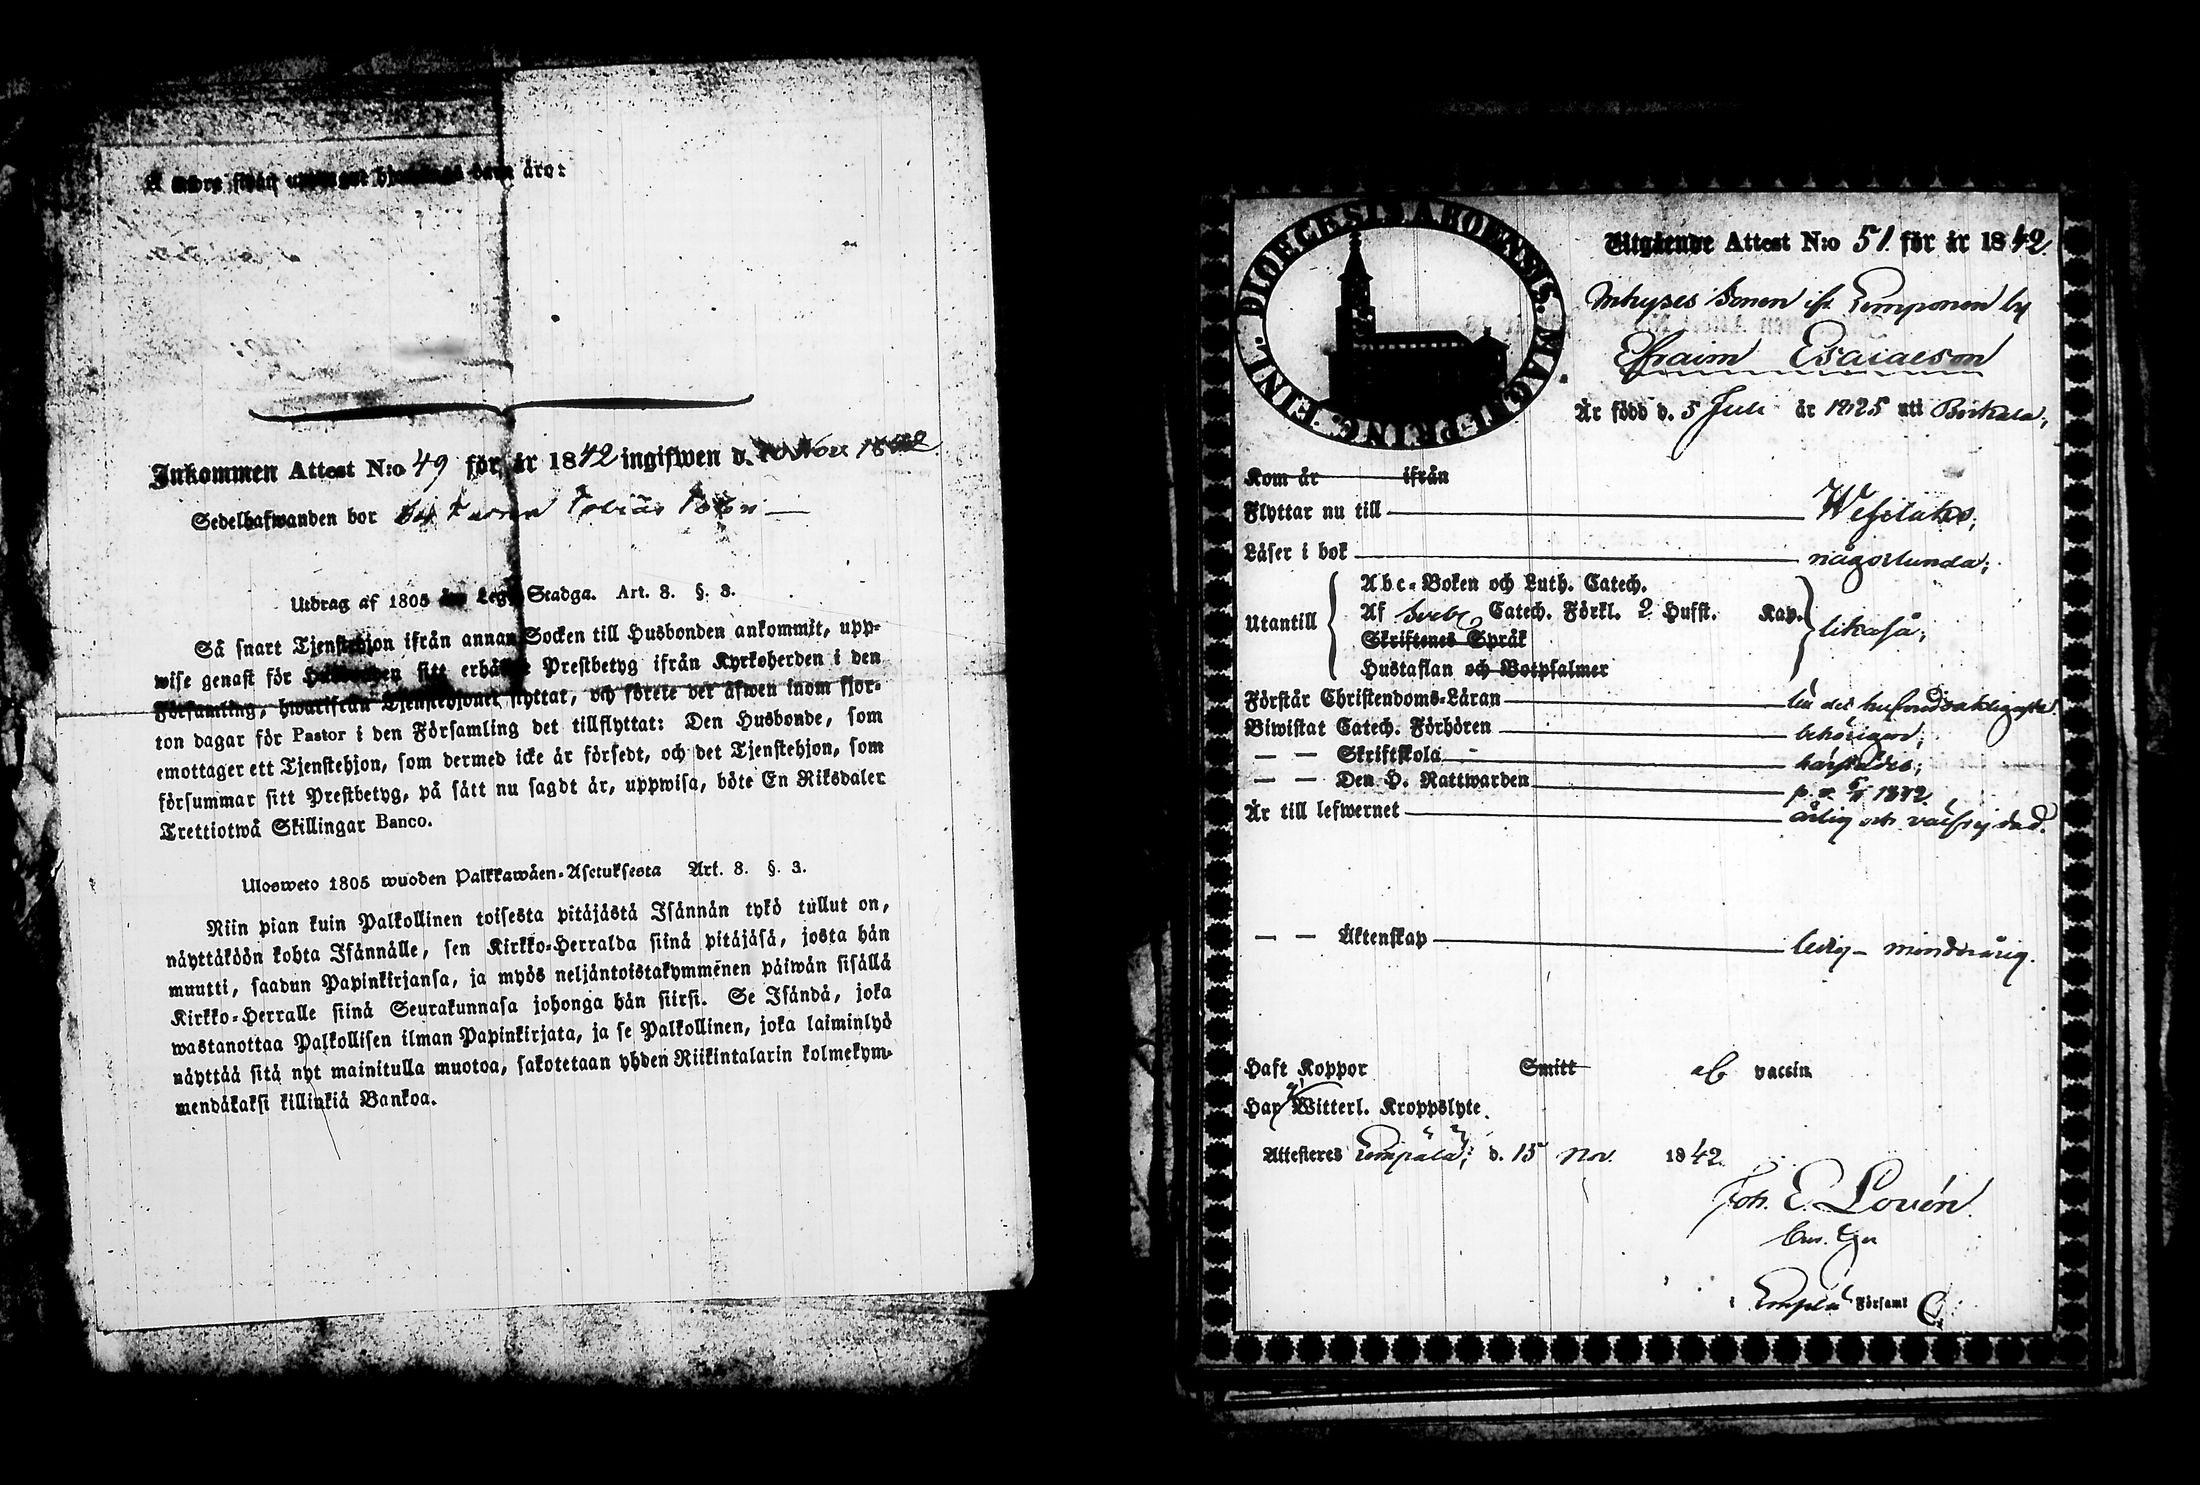 äro:
Inkommen Attest N:o 49 för år 1842 ingifwen d. Nov 1842
Sedelhafwanden bor Tobias
Utdrag af 1805 års Lego Stadga. Art. 8. §. 3.
Så snart Tjenstehjon ifrån annan Socken till Husbonden ankommit, upp-
wise genast för Husbonden sitt erhållne Prestbetyg ifrån Kyrkoherden i den
Församling, hwarifrån Tjenstehjonet flyttat, och förete det äfwen inom fjor-
ton dagar för Pastor i den Församling det tillflyttat: Den Husbonde, som
emottager ett Tjenstehjon, som dermed icke är försedt, och det Tjenstehjon, som
försummar sitt Prestbetyg, på sätt nu sagdt är, uppwisa, böte En Riksdaler
Trettiotwå Skillingar Banco.
Ulosweto 1805 wuoden Palkkawäen-Asetuksesta Art. 8. §. 3.
Niin pian kuin Palkollinen toisesta pitäjästä Isännän tykö tullut on,
näyttäköön kohta Isännälle, sen Kirkko-Herralda siinä pitäjäsä, josta hän
muutti, saadun Papinkirjansa, ja myös neljäntoistakymmenen päiwän sisällä
Kirkko-Herralle siinä Seurakunnasa johonga hän siirsi. Se Isändä, joka
wastanottaa Palkollisen ilman Papinkirjata, ja se Palkollinen, joka laiminlyö
näyttää sitä nyt mainitulla muotoa, sakotetaan yhden Riikintalarin kolmekym-
mendäkaksi killinkiä Bankoa.
DIOECESIS ABOENSIS. MAGNI PRINC. FINL.
Utgående Attest N:o 51 för år 1842.
Inhyses Sonen ifr. Lemponen by
Efraim Esaiaeson
Är född d. 5 Juli år 1825 uti Birkala,
Kom år ifrån
Flyttar nu till Wesilaks,
Läser i bok någorlunda,
Utantill
Abc-Boken och Luth. Catech.
Af Sveb. Catech. Förkl. 2 Hufst. Kap.
Skriftenes Språk
Hustaflan och Botpsalmer
likaså,
Förstår Christendoms-Läran till det hufvudsakligaste.
Biwistat Catech. Förhören behörigen,
— — Skriftskola härstädes,
— — Den H. Nattwarden 1842.
Är till lefwernet ärlig och välfrejdad.
— — Äktenskap ledig - minderårig.
Haft Koppor Smitt vaccin
Har Witterl. Kroppslyte.
Attesteres Lempälä, d. 15 Nov. 1842.
Joh. E. Lovén.
i Lempälä Församl